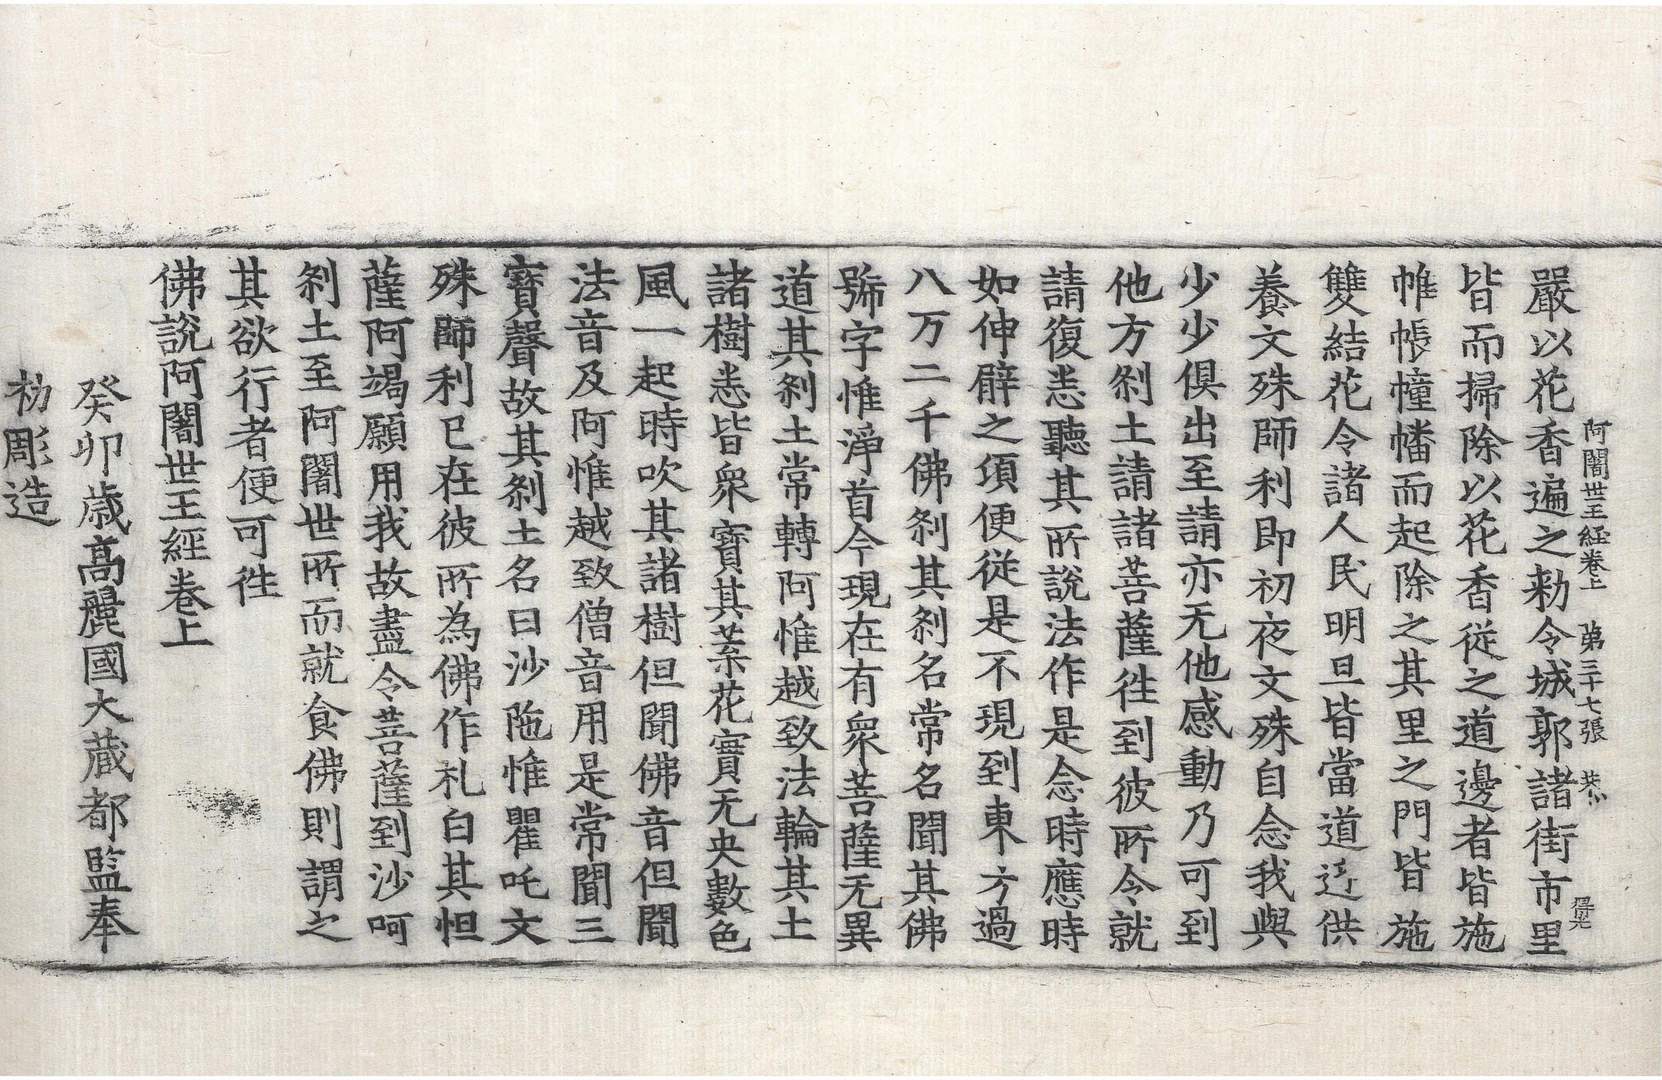 阿闍世王經卷上 第三十七張 恭
嚴以花香遍之勑令城郭諸街市里
皆而掃除以花香從之道邊者皆施
帷帳幢幡而起除之其里之門皆施
雙結花令諸人民明旦皆當道迎供
養文殊師利即初夜文殊自念我與
少少俱出至請亦无他感動乃可到
他方刹土請諸菩薩徃到彼所令就
請復悉聽其所說法作是念時應時
如伸臂之頃便從是不現到東方過
八万二千佛刹其刹名常名聞其佛
號字惟淨首今現在有衆菩薩无異
道其刹土常轉阿惟越致法輪其土
諸樹悉皆衆寶其葉花實无央數色
風一起時吹其諸樹但聞佛音但聞
法音及阿惟越致僧音用是常聞三
寶聲故其刹土名曰沙陁惟瞿吒文
殊師利已在彼所為佛作礼白其怛
薩阿竭願用我故盡令菩薩到沙呵
刹土至阿闍世所而就食佛則謂之
其欲行者便可徃
佛說阿闍世王經卷上
癸卯歲高麗國大藏都監奉
勑彫造